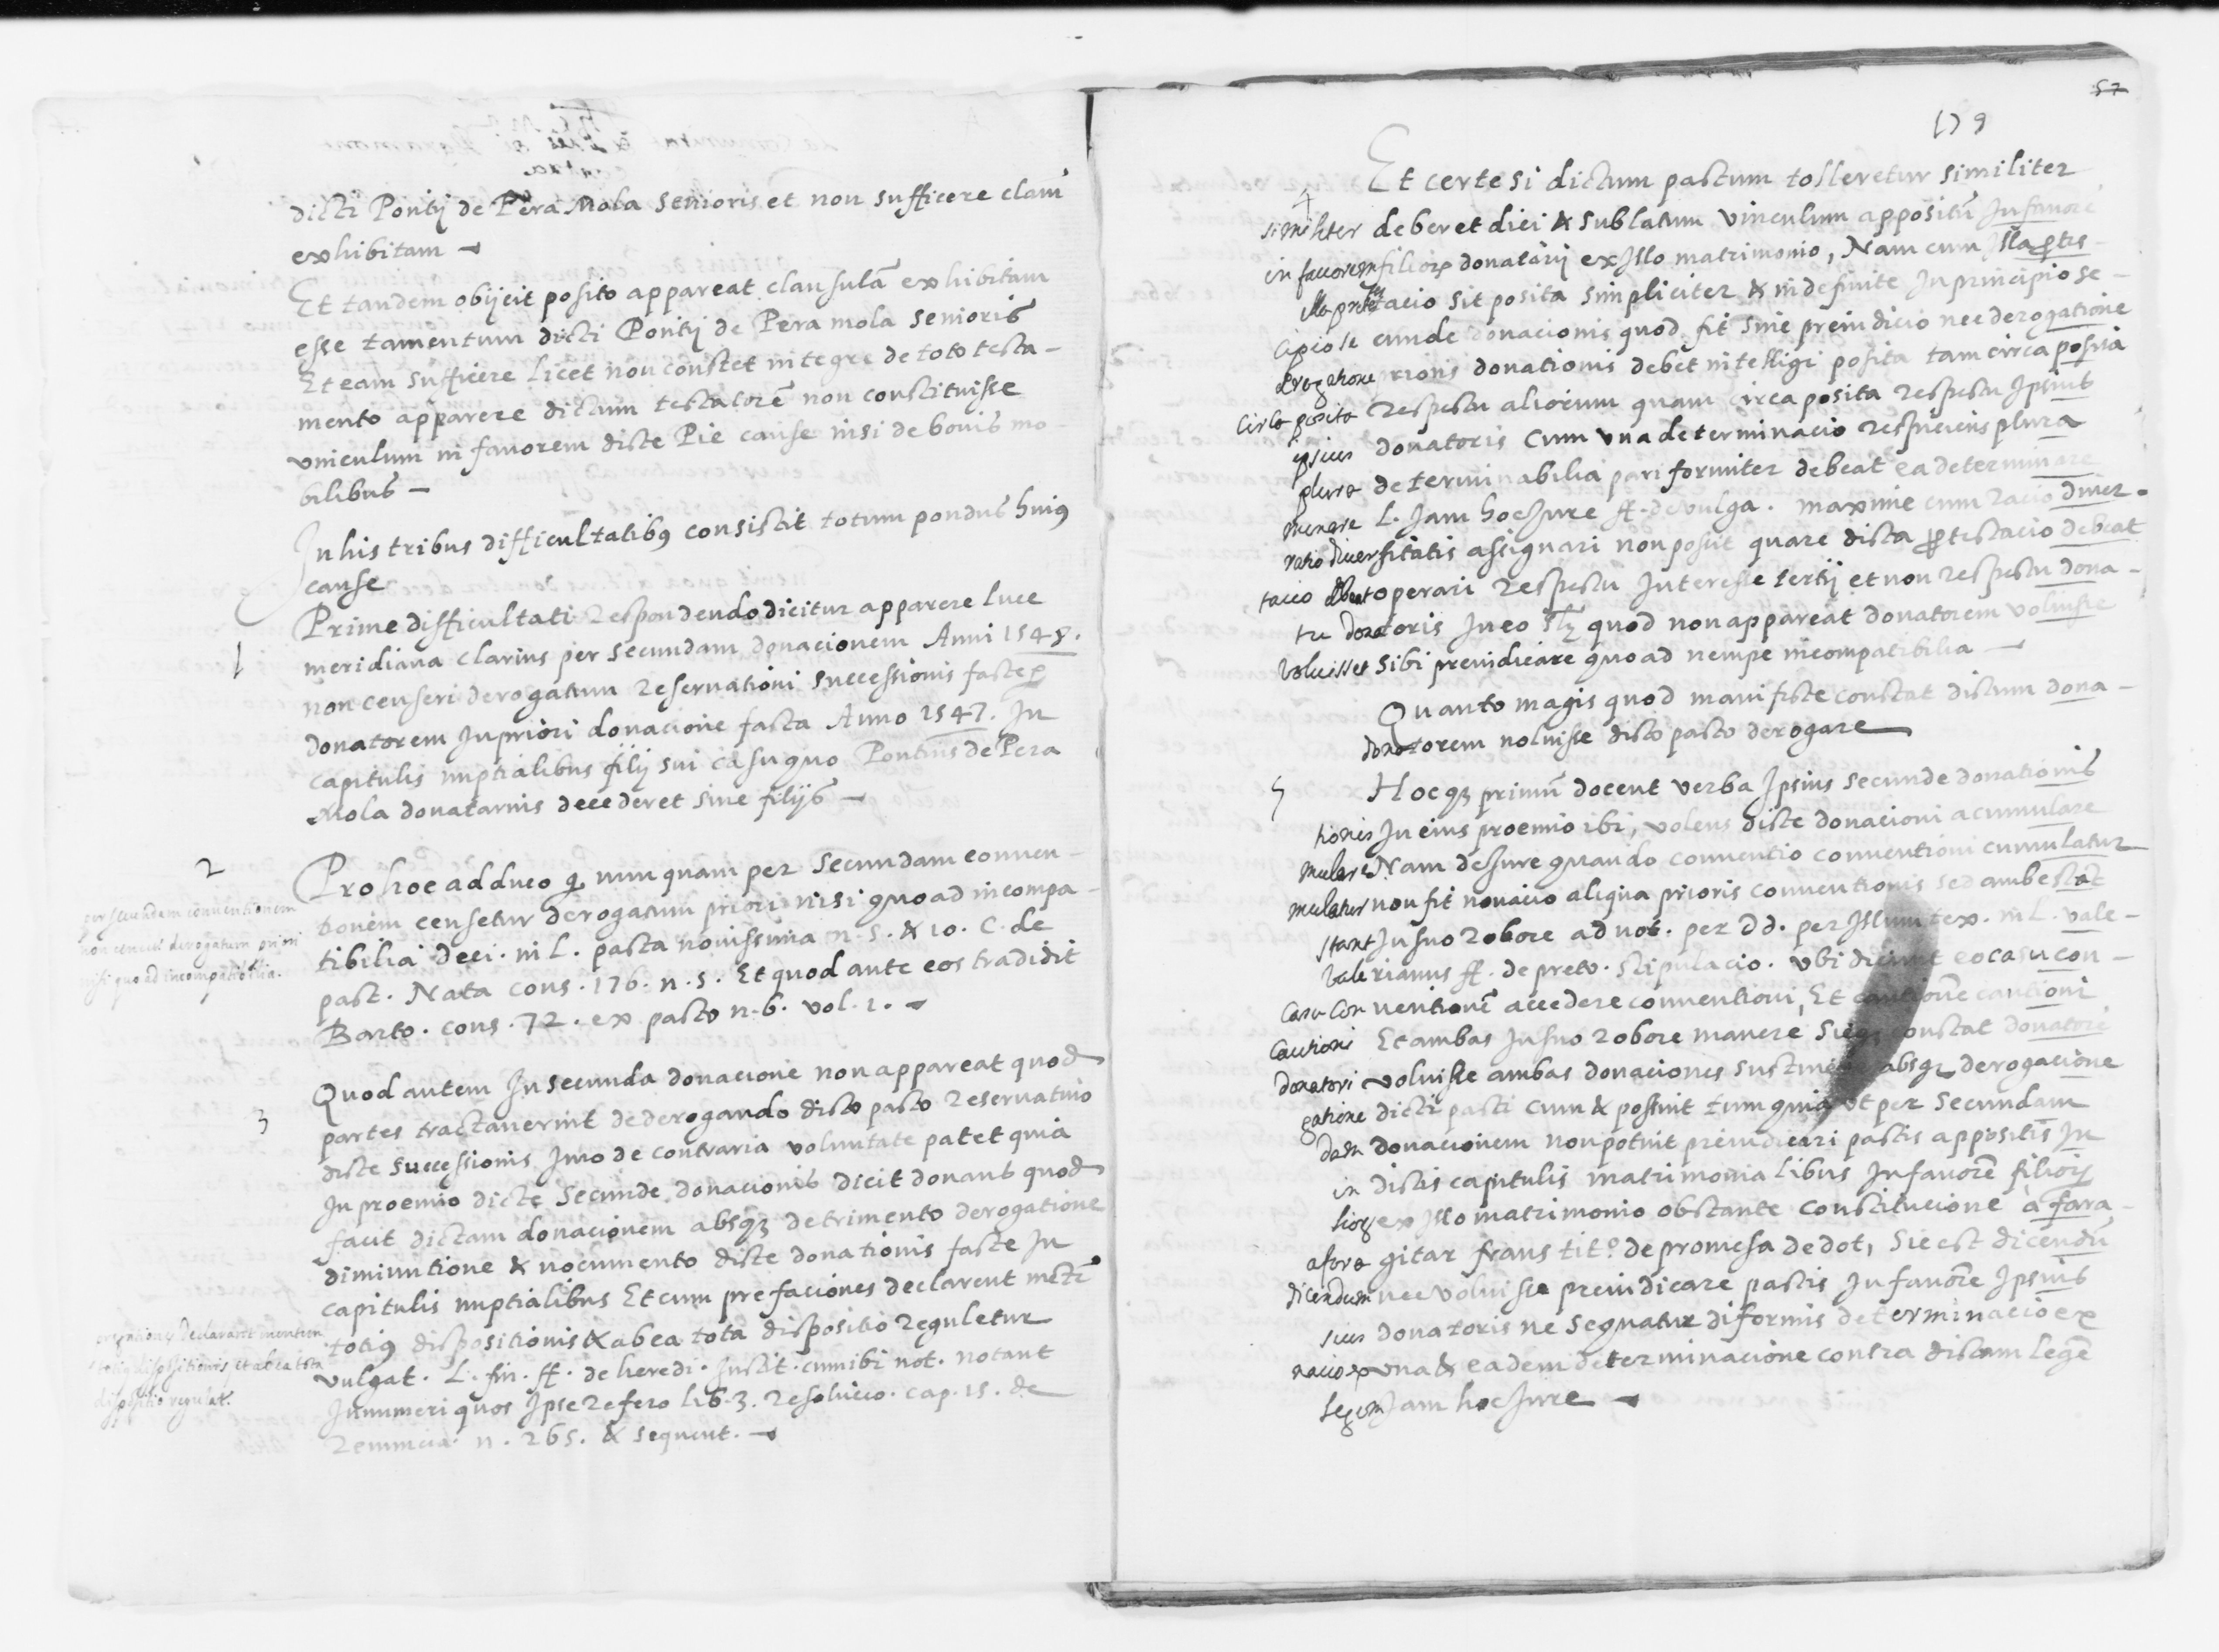 dicti Pontij de Pera Mola senioris et non sufficere clam
exhibitam
Et tandem obijcit posito appareat clausulã exhibitam
esse tamentum dicti Pontij de Pera mola senioris
Et eam sufficere Licet non constet integre de toto testa-
mento apparere dictum testatorẽ non constituisse
vniculum in favorem dicte Pie cause nisi de bonis mo
bilibus
In his tribus difficultatibꝯ consistit totum pondus huiꝯ
cause
1
Prime difficultati Respondendo dicitur apparere luce
meridiana clarius per secundam donacionem Anni 1548.
non censeri derogatum Reservationi successionis facte ꝑ
donatorem In priori donacione facta Anno 1547. In
capitulis nuptialibus filij sui casu quo Pontius de Pera
Mola donatarius decederet sine filijs
2
Pro hoc adduco ꝙ nunquam per secundam conven-
tionem censetur derogatum priori nisi quo ad incompa-
tibilia Deci. in L. pacta novissima n. 5. & 10. C. de
pact. Nata cons. 176. n. 5. Et quod ante eos tradidit
Barto. cons. 72. ex pacto n. 6. vol. 1.
per secundam conventionem
non censeri derogatum priori
nisi quo ad incompatibilia.
3
Quod autem In secunda donacione non appareat quod
partes tractaverint de derogando dicto pacto Reservativo
dicte successionis Imo de contraria voluntate patet quia
In proemio dicte secunde donacionis dicit donans quod
facit dictam donacionem absqꝫ detrimento derogatione
diminutione & nocumento dicte donationis facte In
capitulis nuptialibus Et cum prefaciones declarent mẽtẽ
totiꝯ dispositionis & ab ea tota dispositio Reguletur
vulgat. L. fin. ff. de heredi. Instit. cum ibi not. notant
Innumeri quos Ipse Refero lib. 3. Resolucio. cap. 15. de
Renuncia. n. 265. & sequent.
prefationes declarant mentem
totiꝯ dispositionis et ab ea tota
dispositio regulat.
57
179
4
Et certe si dictum pactum tolleretur similiter
similiter deberet dici & sublatum vinculum appositũ In favorẽ
in favorem filioꝝ donatarij ex Illo matrimonio, Nam cum Illa ꝓtes
illa protestacio sit posita simpliciter & indefinite In principio se-
cipio se cunde donacionis quod fit sine preiudicio nec derogatione
derogatione prioris donationis debet intelligi posita tam circa posita
circa posita Respectu aliorum quam circa posita Respectu Ipsius
ipsius donatoris Cum vna determinacio Respiciens plura
plura determinabilia pari formiter debeat ea determinare
minare L. Jam hoc Jure ff. de vulga. maxime cum Racio diver-
ratio diversitatis assignari non possit quare dicta ꝓtestacio debeat
tacio debeat operari Respectu Interesse tertij et non Respectu dona-
tu donatoris In eo slꝫ quod non appareat donatorem voluisse
voluisset sibi preiudicare quo ad nempe incompatibilia
Quanto magis quod manifeste constat dictum dona-
donatorem noluisse dicto pacto derogare
5
Hocqꝫ primũ docent verba Ipsius secunde donationis
tionis In eius proemio ibi, volens dicte donacioni acumulare
mulare Nam de Jure quando conventio conventioni cumulatur
mulatur non fit novacio aliqua prioris conventionis sed ambe stãt
stant In suo Robore ad not. per dd. per Illum tex. in L. vale-
valerianus ff. de preto. stipulacio. vbi dicunt eo casu con-
casu con ventionẽ accedere conventioni, Et cautionẽ cautioni
cautioni Et ambas In suo Robore manere, Sicqꝫ constat donatorẽ
donatori voluisse ambas donaciones sustinere absqꝫ derogacione
gatione dicti pacti cum & possint tum quia Ut per secundam
dam donacionem non potuit preiudicari pactis appositis In
in dictis capitulis matrimonialibus In favorẽ filioꝝ
lioꝝ ex Illo matrimonio obstante constitucione à fora-
afora gitar fraus tit.º de promesa de dot, Sic est dicendũ
dicendum nec voluisse preiudicare pactis In favorẽ Ipsius
sius donatoris ne sequatur diformis determinacio ex
nacio ex vna & eadem determinacione contra dictam legẽ
legem Jam hoc Jure